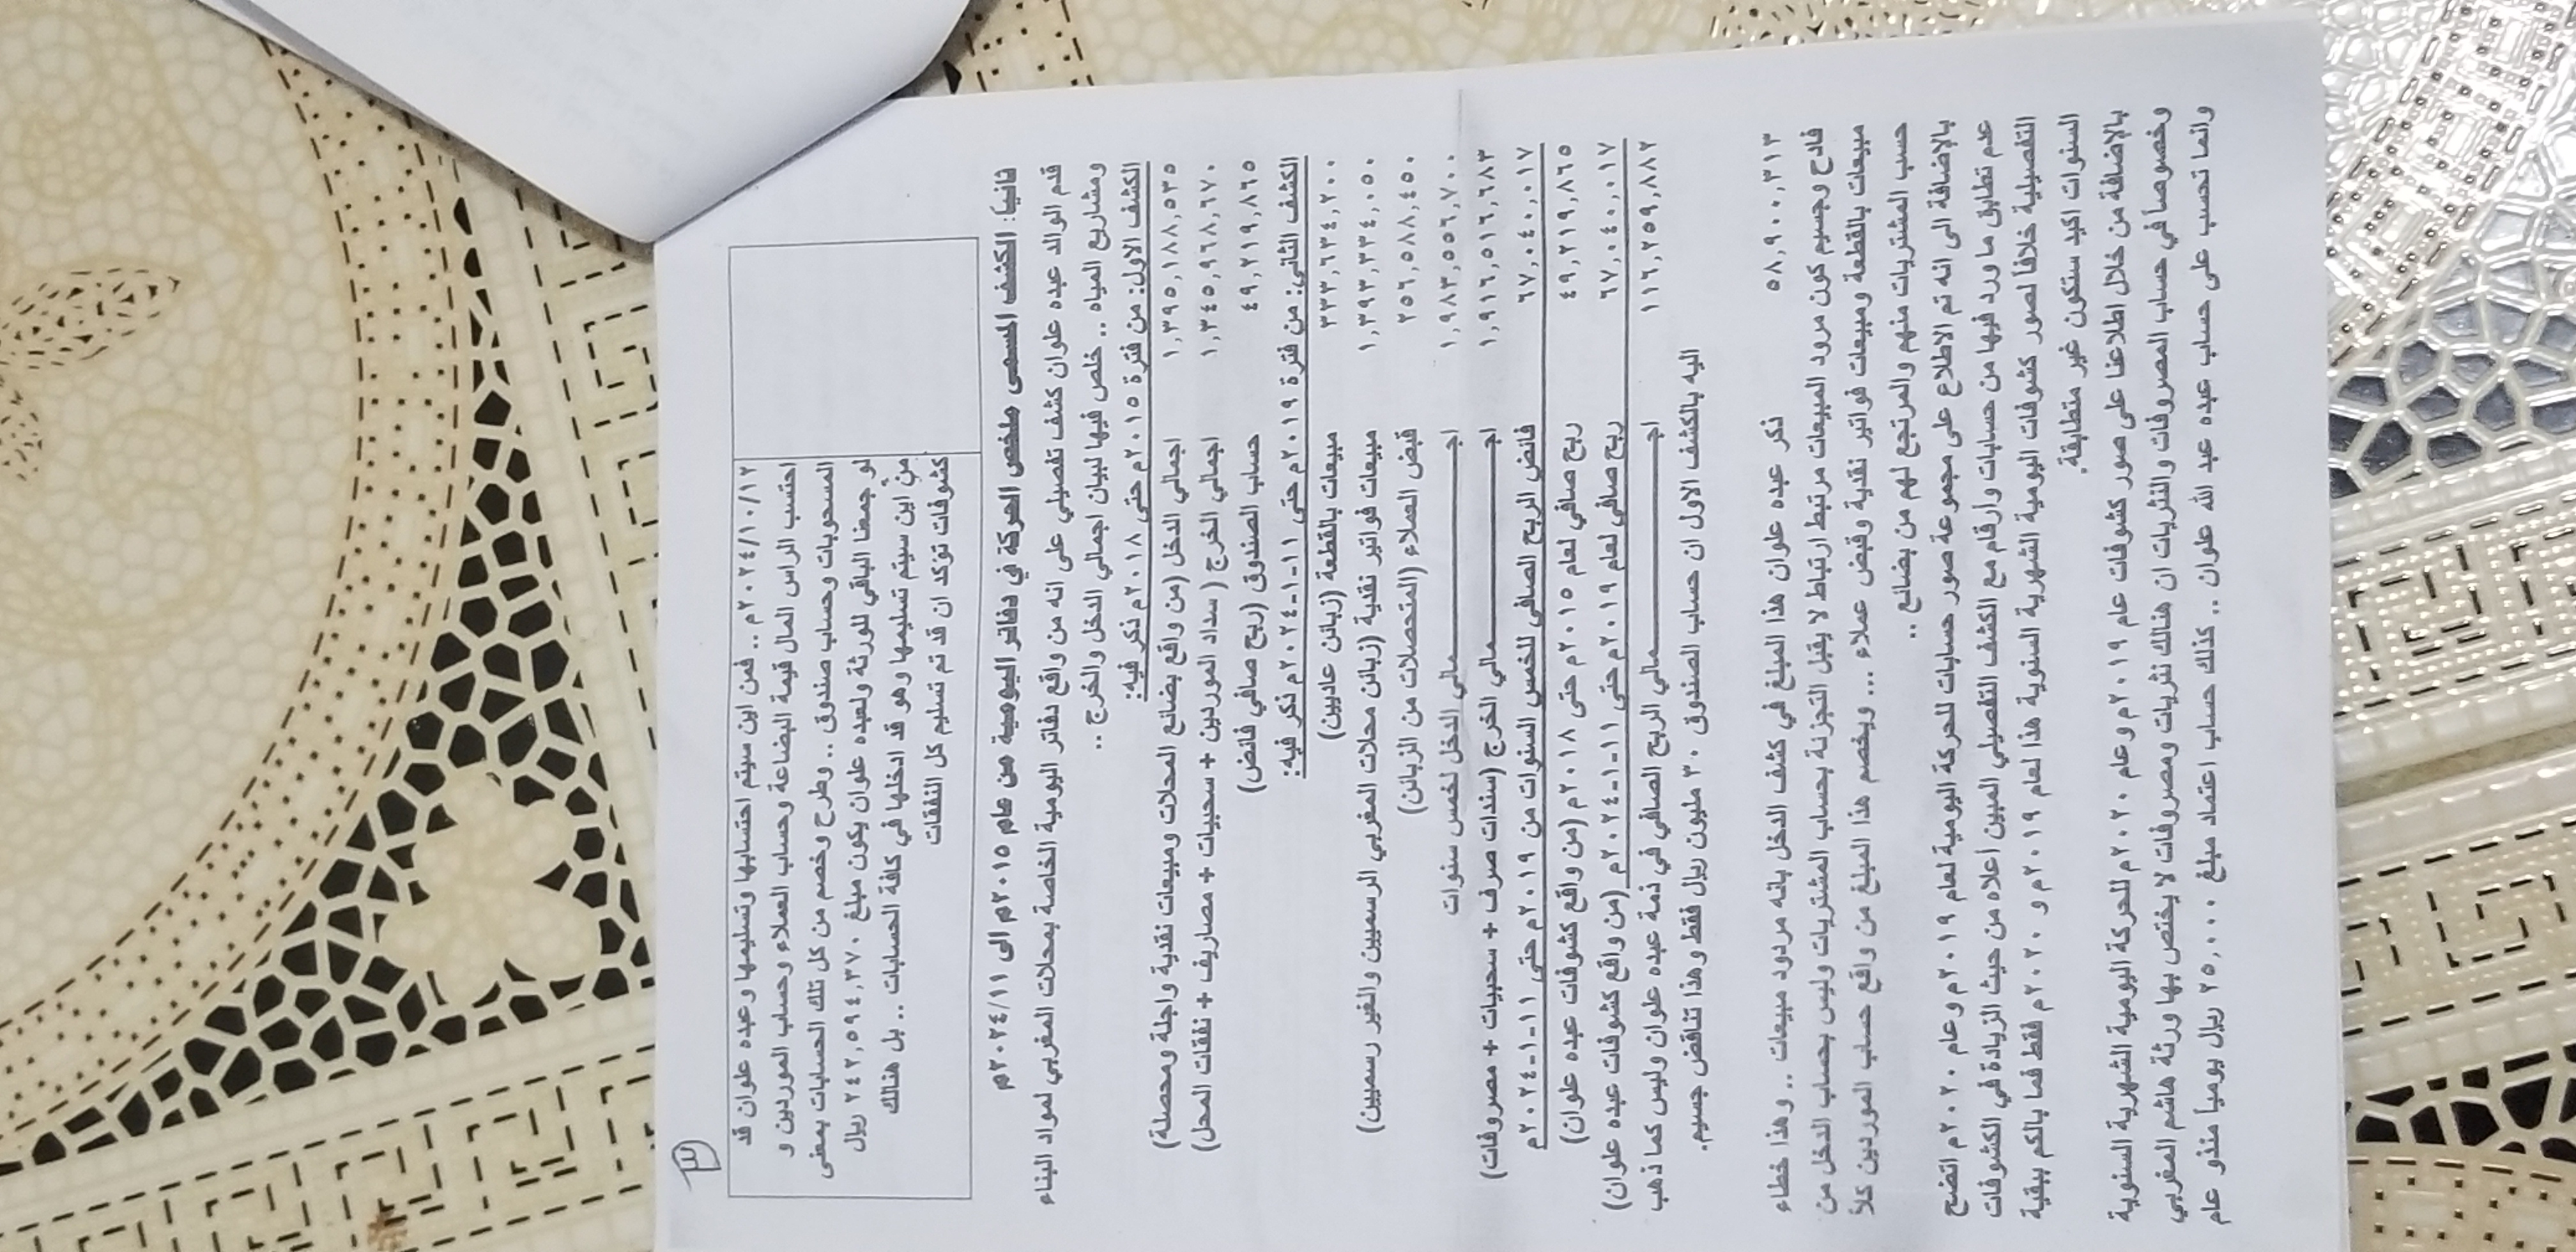 ٣
٢٠٢٤/١٠/١٢م .. فمن اين سيتم احتسابها وتسليمها وعبده علوان قد
احتسب الراس المال قيمة البضاعة وحساب العملاء وحساب الموردين و
المسحوبات وحساب صندوق .. وطرح وخصم من كل تلك الحسابات بمعنى
لو جمعنا الباقي للورثة ولعبده علوان يكون مبلغ ٢٤٢,٥٩٤,٣٧٠ ريال
من اين سيتم تسليمها وهو قد ادخلها في كافة الحسابات .. بل هنالك
كشوفات تؤكد ان قد تم تسليم كل النفقات
ثانياً: الكشف المسمى ملخص الحركة في دفاتر اليومية من عام ٢٠١٥م الى ٢٠٢٤/١١م
قدم الوالد عبده علوان كشف تفصيلي على انه من واقع دفاتر اليومية الخاصة بمحلات المغربي لمواد البناء
ومشاريع المياه .. خلص فيها لبيان اجمالي الدخل والخرج ..
الكشف الاول: من فترة ٢٠١٥م حتى ٢٠١٨م ذكر فيه:
١,٣٩٥,١٨٨,٥٣٥ اجمالي الدخل (من واقع بضائع المحلات ومبيعات نقدية واجلة ومحصلة)
١,٣٤٥,٩٦٨,٦٧٠ اجمالي الخرج ( سداد الموردين + سحبيات + مصاريف + نفقات المحل)
٤٩,٢١٩,٨٦٥ حساب الصندوق (ربح صافي فائض)
الكشف الثاني: من فترة ٢٠١٩م حتى ١١-١-٢٠٢٤م ذكر فيه:
٣٣٣,٦٣٤,٢٠٠ مبيعات بالقطعة (زبائن عاديين)
١,٣٩٣,٣٣٤,٠٥٠ مبيعات فواتير نقدية (زبائن محلات المغربي الرسميين والغير رسميين)
٢٥٦,٥٨٨,٤٥٠ قبض العملاء (المتحصلات من الزبائن)
١,٩٨٣,٥٥٦,٧٠٠ اجـــــــمالي الدخل لخمس سنوات
١,٩١٦,٥١٦,٦٨٣ اجـــــــمالي الخرج (سندات صرف + سحبيات + مصروفات)
٦٧,٠٤٠,٠١٧ فائض الربح الصافي للخمس السنوات من ٢٠١٩م حتى ١١-١-٢٠٢٤م
٤٩,٢١٩,٨٦٥ ربح صافي لعام ٢٠١٥م حتى ٢٠١٨م (من واقع كشوفات عبده علوان)
٦٧,٠٤٠,٠١٧ ربح صافي لعام ٢٠١٩م حتى ١١-١-٢٠٢٤م (من واقع كشوفات عبده علوان)
١١٦,٢٥٩,٨٨٢ اجـــــــمالي الربح الصافي في ذمة عبده علوان وليس كما ذهب
اليه بالكشف الاول ان حساب الصندوق ٣٠ مليون ريال فقط وهذا تناقض جسيم.
٥٨,٩٠٠,٣١٣ ذكر عبده علوان هذا المبلغ في كشف الدخل بانه مردود مبيعات .. وهذا خطاء
فادح وجسيم كون مرود المبيعات مرتبط ارتباط لا يقبل التجزئة بحساب المشتريات وليس بحساب الدخل من
مبيعات بالقطعة ومبيعات فواتير نقدية وقبض عملاء ... ويخصم هذا المبلغ من واقع حساب الموردين كلاً
حسب المشتريات منهم والمرتجع لهم من بضائع ..
بالإضافة الى انه تم الاطلاع على مجموعة صور حسابات للحركة اليومية لعام ٢٠١٩م وعام ٢٠٢٠م اتضح
عدم تطابق ما ورد فيها من حسابات وارقام مع الكشف التفصيلي المبين اعلاه من حيث الزيادة في الكشوفات
التفصيلية خلافاً لصور كشوفات اليومية الشهرية السنوية هذا لعام ٢٠١٩م و ٢٠٢٠م فقط فما بالكم ببقية
السنوات اكيد ستكون غير متطابقة.
بالإضافة من خلال اطلاعنا على صور كشوفات عام ٢٠١٩م وعام ٢٠٢٠م للحركة اليومية الشهرية السنوية
وخصوصاً في حساب المصروفات والنثريات ان هنالك نثريات ومصروفات لا يختص بها ورثة هاشم المغربي
وانما تحسب على حساب عبده عبد الله علوان .. كذلك حساب اعتماد مبلغ ٢٥,٠٠٠ ريال يومياً منذو عام